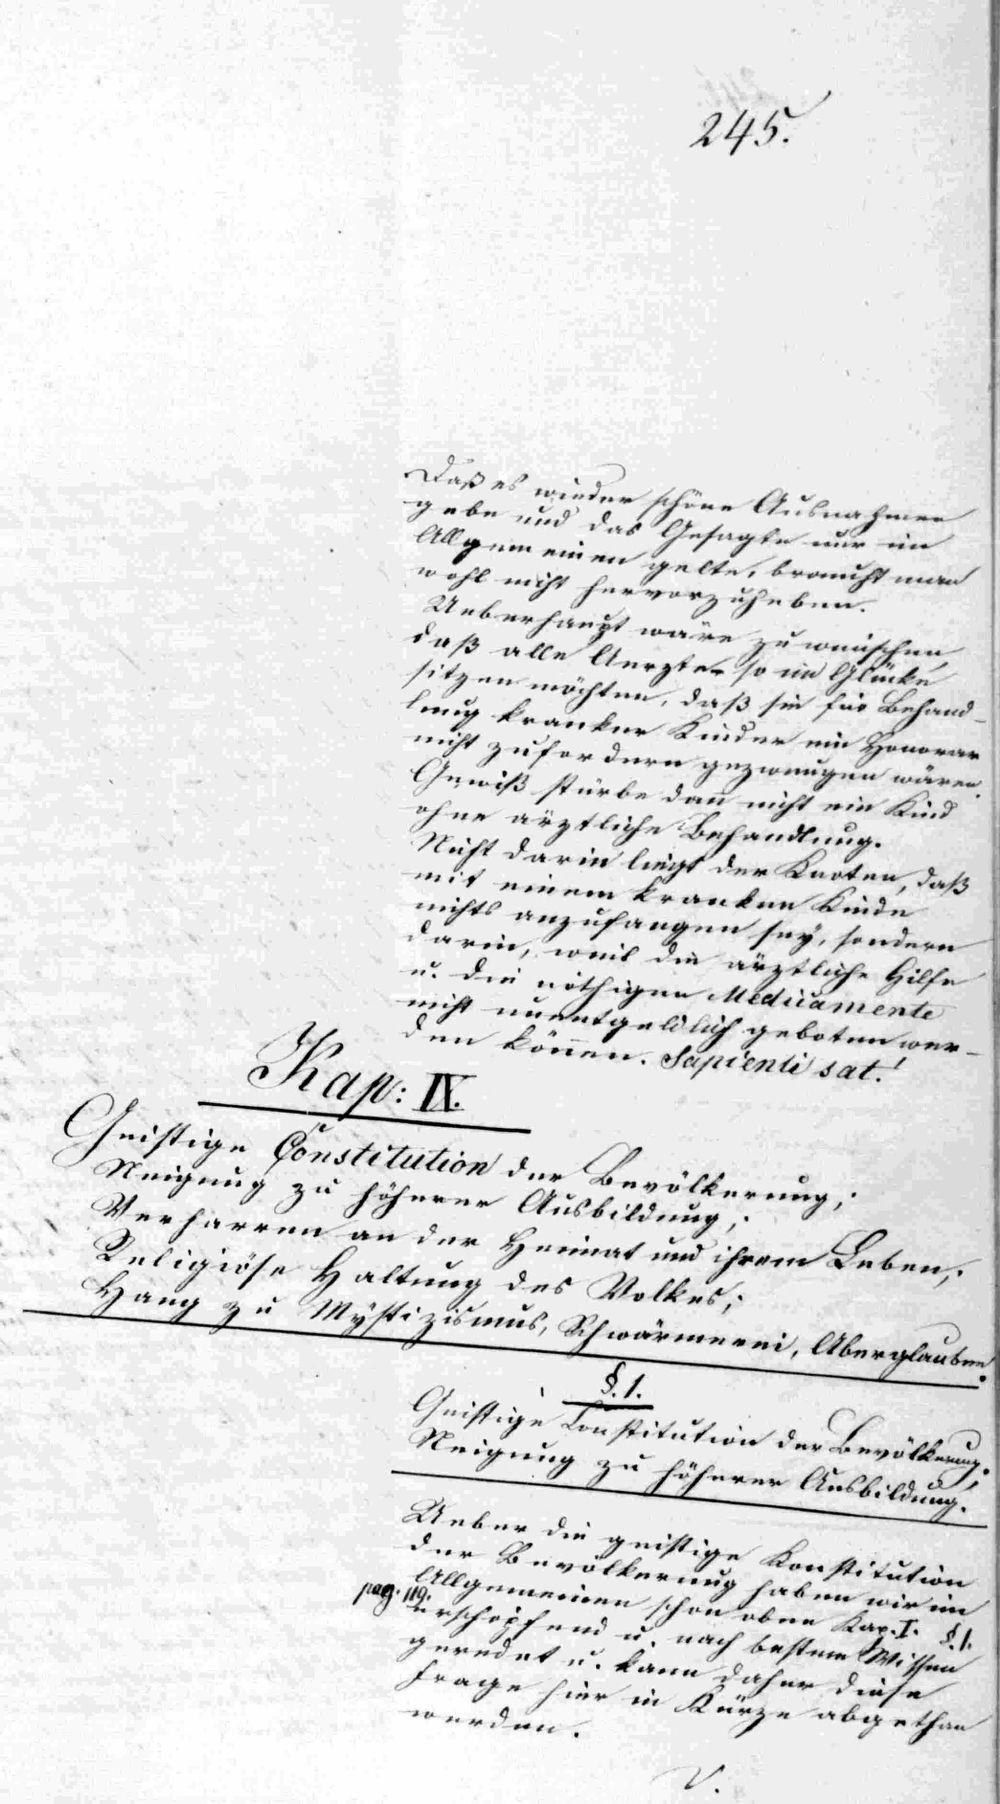 245.
Daß es wieder schöne Ausnahmen
gebe und das Gesagte nur im
Allgemeinen gelte, braucht man
wohl nicht hervorzuheben.
Ueberhaupt wäre zu wünschen,
daß alle Aerzte so im Glücke
sitzen möchten, daß sie für Behand-
lung kranker Kinder ein Honorar
nicht zu fordern gezwungen wären.
Gewiß stürbe dan̄ nicht ein Kind
ohne ärztliche Behandlung.
Nicht darin liegt der Knoten, daß
mit einem kranken Kinde
nichts anzufangen seÿ, sondern
darin, weil die ärztliche Hilfe
u. die nöthigen Medicamente
nicht unentgeldlich geboten wer-
den kön̄en. Sapienti sat!
Kap: IX.
Geistige Constitution der Bevölkerung;
Neigung zu höherer Ausbildung;
Verharren an der Heimat und ihrem Leben;
Religiöse Haltung des Volkes;
Hang zu Mÿstizismus, Schwärmerei, Aberglauben.
§. 1.
Geistige Constitution der Bevölkerung.
Neigung zu höherer Ausbildung.
Ueber die geistige Konstitution
der Bevölkerung haben wir im
Allgemeinen schon oben Kap. I. §. 1.
pag. 119. erschöpfend u. nach bestem Wissen
geredet u. kann daher diese
Frage hier in Kürze abgethan
werden.
V.